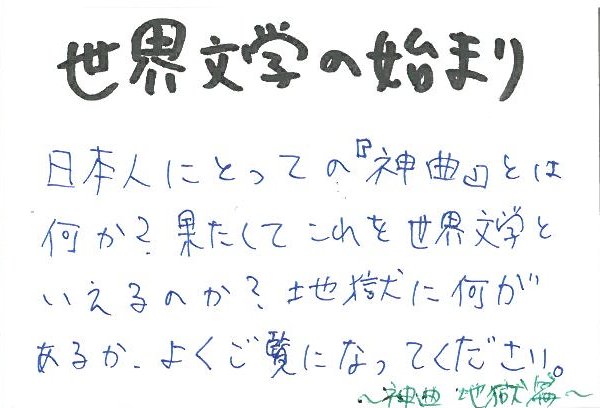 世界文学の始まり
日本人にとっての『神曲』とは
何か？果たしてこれを世界文学と
いえるのか？地獄に何が
あるか、よくご覧になってください。
～神曲 地獄篇～